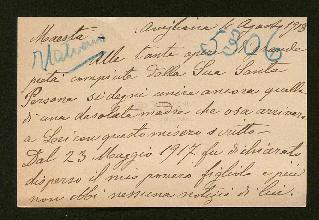 Maestà Avigliana 4 Agosto 1918
Italiano
5306
Alle tante opere di grande
pietà compiute dalla Sua Santa
Persona si degni unire ancora quella
di una desolata madre che osa arrivare
a Lei con questo misero scritto.
Dal 23 Maggio 1917 fu dichiarato
disperso il mio povero figliolo e più
non ebbi nessuna notizia di lui.